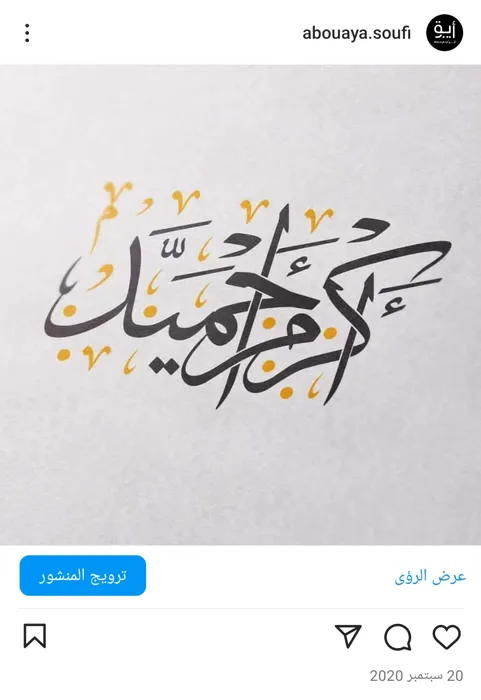 abouaya.soufi
أيق
أكرم
عرض الرؤى
ترويج المنشور
20 سبتمبر 2020